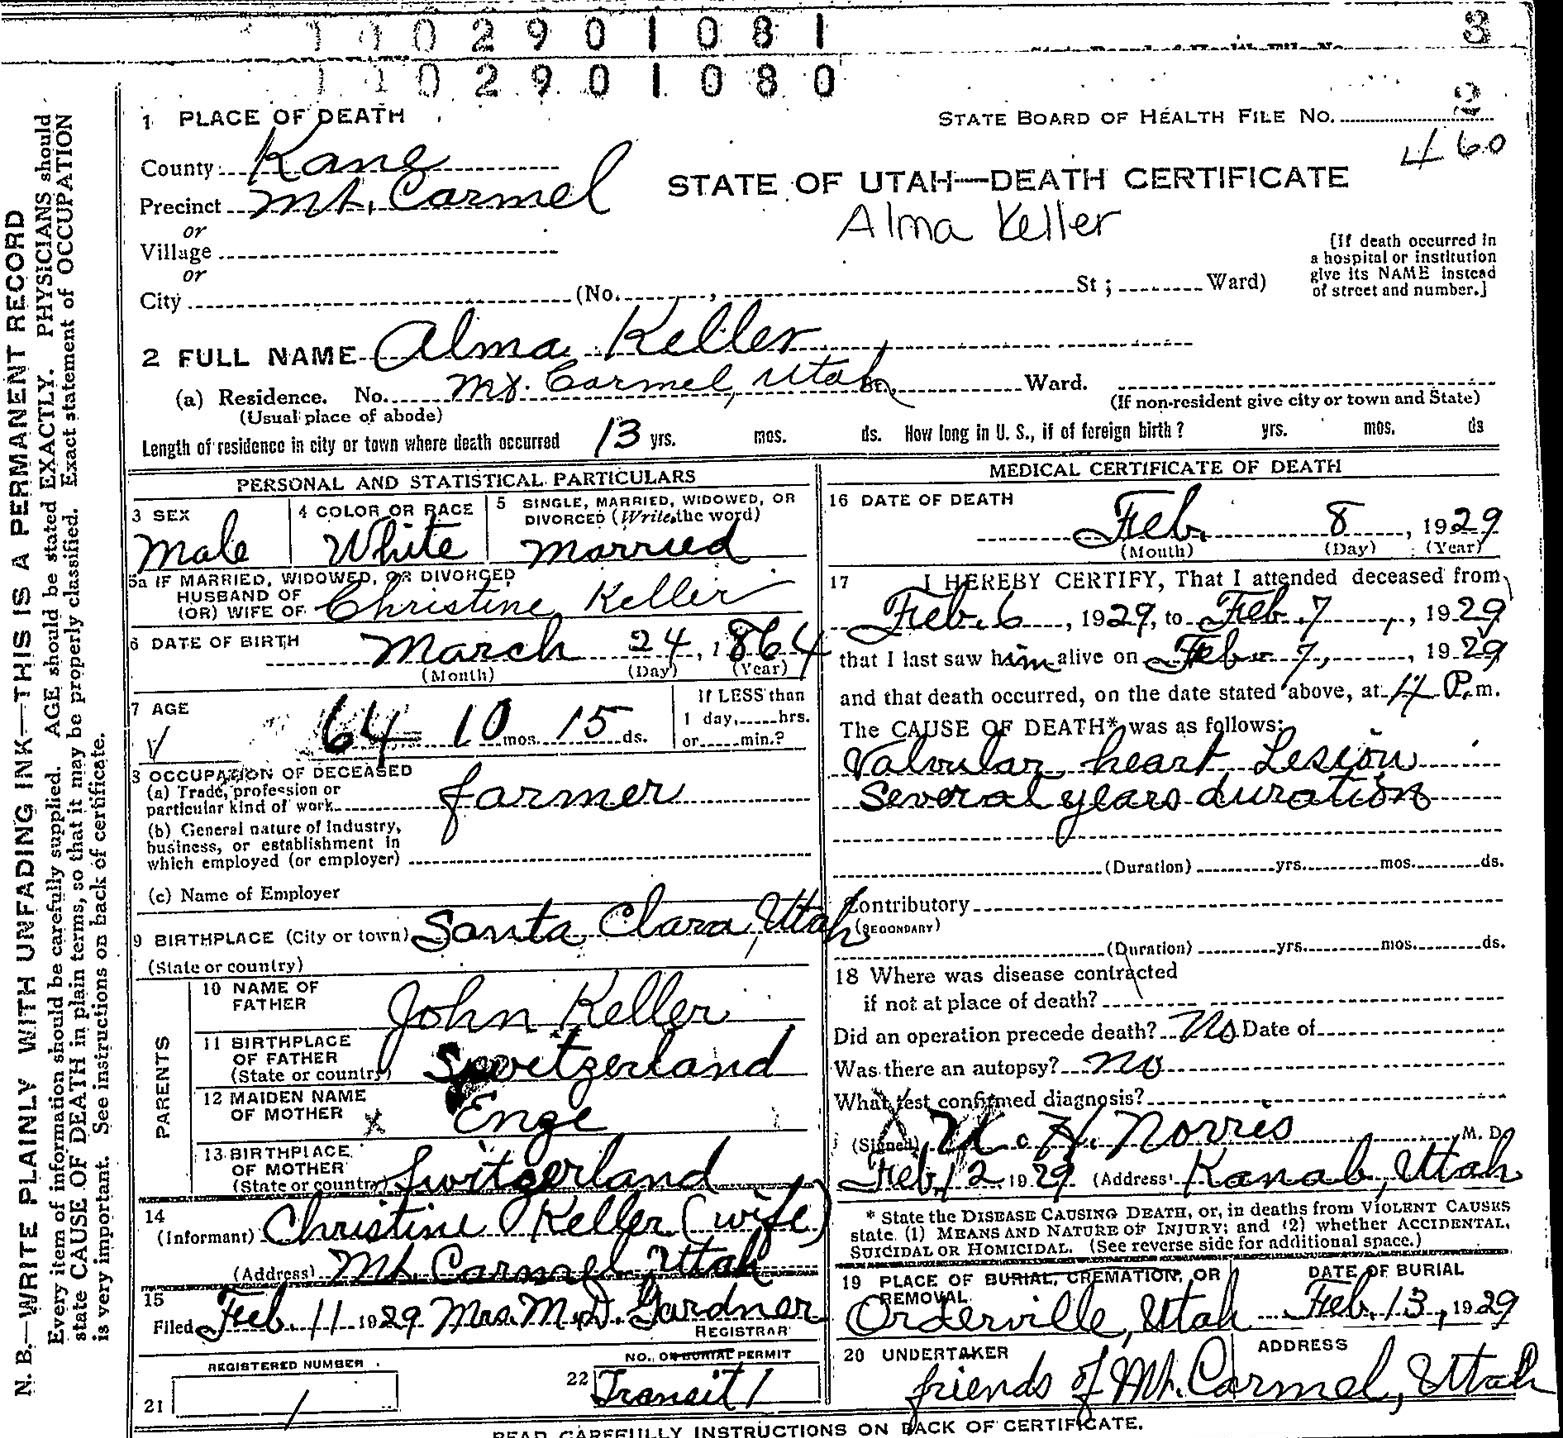 1 1 0 2 9 0 1 0 8 1
3
1 1 0 2 9 0 1 0 8 0
2
1 PLACE OF DEATH
STATE BOARD OF HEALTH FILE No.
460
County Kane
STATE OF UTAH—DEATH CERTIFICATE
Precinct Mt. Carmel
Alma Keller
or
Village
or
City (No. , St ; Ward)
[If death occurred in
a hospital or institution
give its NAME instead
of street and number.]
2 FULL NAME Alma Keller
(a) Residence. No. Mt. Carmel, Utah St. Ward.
(Usual place of abode)
(If non-resident give city or town and State)
Length of residence in city or town where death occurred 13 yrs. mos. ds. How long in U. S., if of foreign birth? yrs. mos. ds
PERSONAL AND STATISTICAL PARTICULARS
3 SEX
Male
4 COLOR OR RACE
White
5 SINGLE, MARRIED, WIDOWED, OR
DIVORCED (Write the word)
Married
5a IF MARRIED, WIDOWED, OR DIVORCED
HUSBAND OF
(OR) WIFE OF Christine Keller
6 DATE OF BIRTH March 24, 1864
(Month) (Day) (Year)
7 AGE
64 10 mos. 15 ds.
If LESS than
1 day, hrs.
or min.?
8 OCCUPATION OF DECEASED
(a) Trade, profession or
particular kind of work farmer
(b) General nature of Industry,
business, or establishment in
which employed (or employer)
(c) Name of Employer
9 BIRTHPLACE (City or town) Santa Clara, Utah
(State or country)
PARENTS
10 NAME OF
FATHER John Keller
11 BIRTHPLACE
OF FATHER
(State or country) Switzerland
12 MAIDEN NAME
OF MOTHER X Enge
13 BIRTHPLACE
OF MOTHER
(State or country) Switzerland
14
(Informant) Christine Keller (wife)
(Address) Mt. Carmel Utah
15
Filed Feb. 11 1929 Mrs. M. D. Gardner
REGISTRAR
REGISTERED NUMBER
21 1
NO. OF BURIAL PERMIT
22 Transit 1
MEDICAL CERTIFICATE OF DEATH
16 DATE OF DEATH
Feb. 8, 1929
(Month) (Day) (Year)
17 I HEREBY CERTIFY, That I attended deceased from
Feb. 6, 1929, to Feb. 7, 1929
that I last saw him alive on Feb. 7, 1929
and that death occurred, on the date stated above, at 4 P. m.
The CAUSE OF DEATH* was as follows:
Valvular heart Lesion
Several years duration
(Duration) yrs. mos. ds.
Contributory
(SECONDARY)
(Duration) yrs. mos. ds.
18 Where was disease contracted
if not at place of death?
Did an operation precede death? No Date of
Was there an autopsy? no
What test confirmed diagnosis?
(Signed) H. Norris M. D.
Feb. 12 1929 (Address) Kanab, Utah
* State the DISEASE CAUSING DEATH, or, in deaths from VIOLENT CAUSES
state (1) MEANS AND NATURE OF INJURY; and (2) whether ACCIDENTAL,
SUICIDAL OR HOMICIDAL. (See reverse side for additional space.)
19 PLACE OF BURIAL, CREMATION, OR
REMOVAL
Orderville, Utah
DATE OF BURIAL
Feb. 13, 1929
20 UNDERTAKER
ADDRESS
friends of Mt. Carmel, Utah
READ CAREFULLY INSTRUCTIONS ON BACK OF CERTIFICATE.
N. B.—WRITE PLAINLY WITH UNFADING INK—THIS IS A PERMANENT RECORD
Every item of information should be carefully supplied. AGE should be stated EXACTLY. PHYSICIANS should
state CAUSE OF DEATH in plain terms, so that it may be properly classified. Exact statement of OCCUPATION
is very important. See instructions on back of certificate.